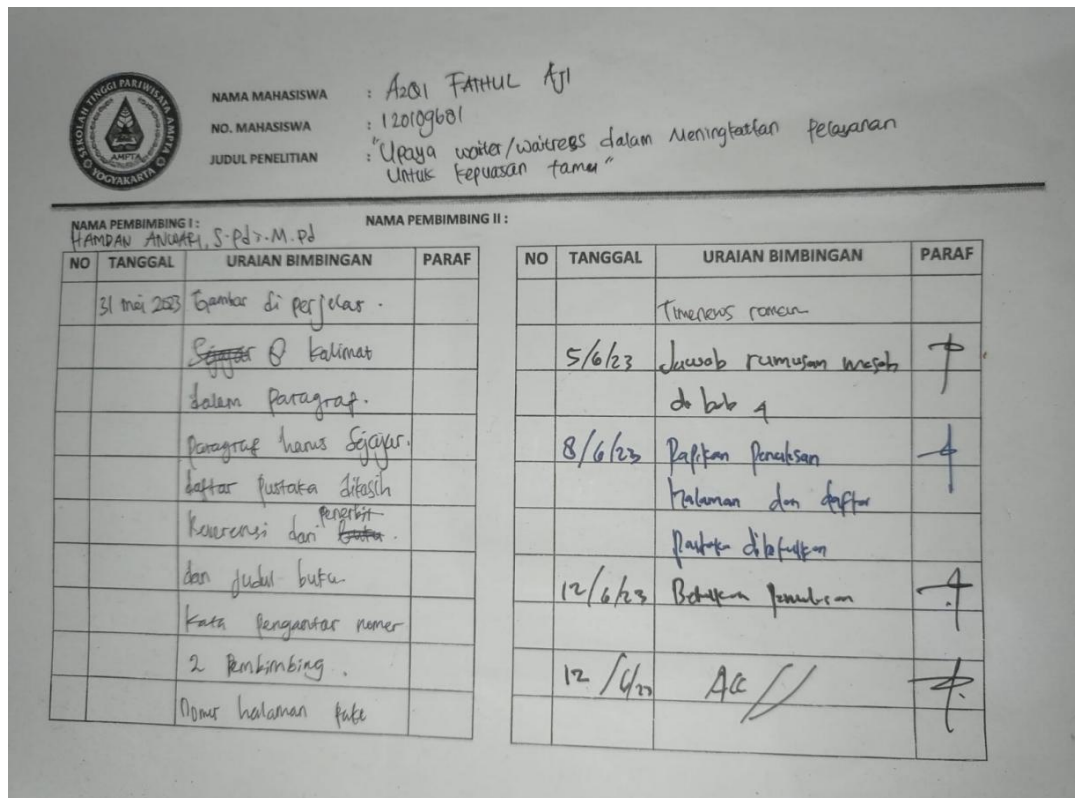 SEKOLAH TINGGI PARIWISATA AMPTA
AMPTA
YOGYAKARTA
NAMA MAHASISWA : AZQI FATHUL AJI
NO. MAHASISWA : 120109681
JUDUL PENELITIAN : "Upaya waiter/waitress dalam Meningkatkan pelayanan
Untuk kepuasan tamu"
NAMA PEMBIMBING I :
NAMA PEMBIMBING II :
HAMDAN ANWARI, S.Pd., M.Pd
NO TANGGAL URAIAN BIMBINGAN PARAF
31 mei 2023 Gambar di perjelas.
8 kalimat
dalam Paragraf.
Paragraf harus Sejajar.
daftar pustaka dikasih
penerbit
dari buku.
dan judul buku
Kata Pengantar nomer
2 Pembimbing.
nomer halaman pake
NO TANGGAL URAIAN BIMBINGAN PARAF
Timenews roman
5/6/23 Jawab rumusan masalah
di bab 4
8/6/23 Rapikan Penulisan
halaman dan daftar
Pustaka
12/6/23 Betulkan Penulisan
12/6/23 Acc